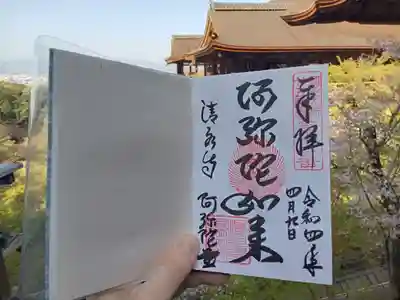 奉拝
令和四年
四月九日
阿弥陀如来
清水寺
阿弥陀堂